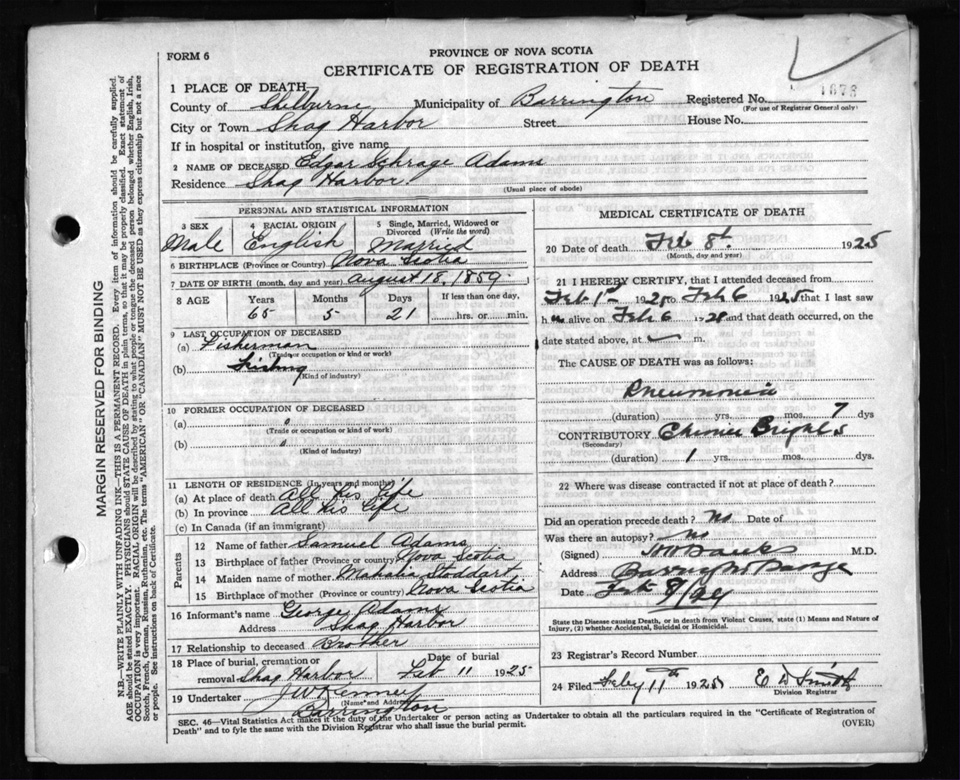 FORM 6
PROVINCE OF NOVA SCOTIA
CERTIFICATE OF REGISTRATION OF DEATH
1 PLACE OF DEATH
County of Shelburne Municipality of Barrington Registered No. 1678
(For use of Registrar General only)
City or Town Shag Harbor Street House No.
If in hospital or institution, give name
2 NAME OF DECEASED Edgar Schrage Adams
Residence Shag Harbor.
(Usual place of abode)
MARGIN RESERVED FOR BINDING
N.B.—WRITE PLAINLY WITH UNFADING INK—THIS IS A PERMANENT RECORD. Every item of information should be carefully supplied.
AGE should be stated EXACTLY. PHYSICIANS should STATE CAUSE OF DEATH in plain terms, so that it may be properly classified. Exact statement of
OCCUPATION is very important. RACIAL ORIGIN will be described by stating to what people or tongue the deceased person belonged whether English, Irish,
Scotch, French, German, Russian, Ruthenian, etc. The terms "AMERICAN" OR "CANADIAN" MUST NOT BE USED as they express citizenship but not a race
or people. See instructions on back of Certificate.
PERSONAL AND STATISTICAL INFORMATION
3 SEX 4 RACIAL ORIGIN 5 Single, Married, Widowed or Divorced (Write the word)
Male English Married
6 BIRTHPLACE (Province or Country) Nova Scotia
7 DATE OF BIRTH (month, day and year) August 18, 1859.
8 AGE Years Months Days If less than one day,
65 5 21 hrs. or min.
9 LAST OCCUPATION OF DECEASED
(a) Fisherman
(Trade or occupation or kind of work)
(b) Fishing
(Kind of industry)
10 FORMER OCCUPATION OF DECEASED
(a)
(Trade or occupation or kind of work)
(b)
(Kind of industry)
11 LENGTH OF RESIDENCE (In years and months)
(a) At place of death All his life
(b) In province All his life
(c) In Canada (if an immigrant)
Parents
12 Name of father Samuel Adams
13 Birthplace of father (Province or country) Nova Scotia
14 Maiden name of mother Mahala Stoddart
15 Birthplace of mother (Province or country) Nova Scotia
16 Informant's name George Adams
Address Shag Harbor
17 Relationship to deceased Brother
18 Place of burial, cremation or removal Shag Harbor Date of burial Feb 11 1925
19 Undertaker J W Kenney
(Name and Address)
Barrington
MEDICAL CERTIFICATE OF DEATH
20 Date of death Feb 8th 1925
(Month, day and year)
21 I HEREBY CERTIFY, that I attended deceased from
Feb 1st 192 to Feb 6 1925 that I last saw
h alive on Feb 6 192 and that death occurred, on
date stated above, at m.
The CAUSE OF DEATH was as follows:
Pneumonia
(duration) yrs. mos. 7 dys
CONTRIBUTORY Brights
(Secondary)
(duration) 1 yrs. mos. dys.
22 Where was disease contracted if not at place of death?
Did an operation precede death? no Date of
Was there an autopsy? no
(Signed) M.D.
Address Barrington Passage
Date Feb 9/24
State the Disease causing Death, or in death from Violent Causes, state (1) Means and Nature of
Injury, (2) whether Accidental, Suicidal or Homicidal.
23 Registrar's Record Number
24 Filed Feby 11th 1925 E D Smith
Division Registrar
SEC. 46—Vital Statistics Act makes it the duty of the Undertaker or person acting as Undertaker to obtain all the particulars required in the "Certificate of Registration of
Death" and to fyle the same with the Division Registrar who shall issue the burial permit. (OVER)